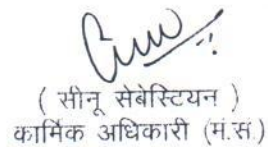 ( सीनू सेबेस्टियन )
कार्मिक अधिकारी (मं.स.)